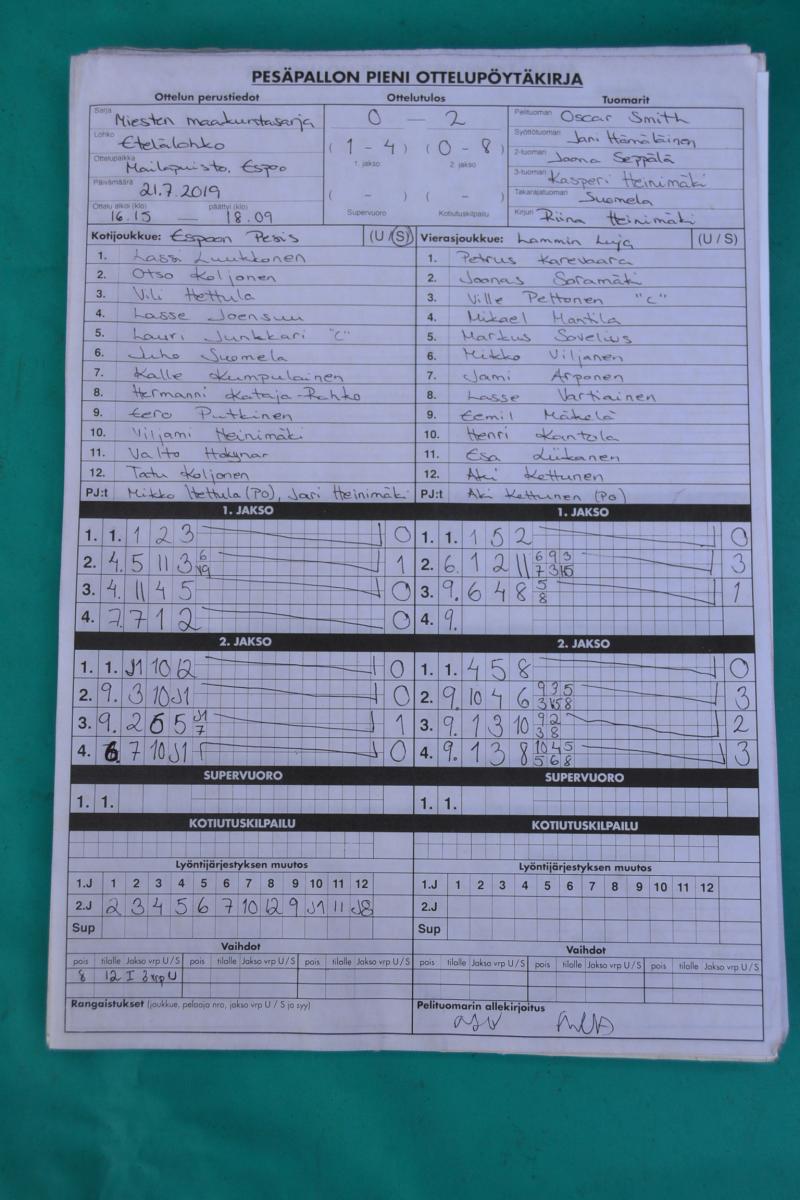 PESÄPALLON PIENI OTTELUPÖYTÄKIRJA
Ottelun perustiedot Ottelutulos Tuomarit
Sarja Miesten maakuntasarja
Lohko Etelälohko
Ottelupaikka Mailapuisto, Espoo
Päivämäärä 21.7.2019
Ottelu alkoi (klo) päättyi (klo)
16.15 — 18.09
0 — 2
(1 - 4) (0 - 8)
1. jakso 2. jakso
( - ) ( - )
Supervuoro Kotiutuskilpailu
Pelituomari Oscar Smith
Syöttötuomari Jari Hämäläinen
2-tuomari Joona Seppälä
3-tuomari Kasperi Heinimäki
Takarajatuomari Suomela
Kirjuri Riina Heinimäki
Kotijoukkue: Espoon Pesis (U / S)
1. Lassi Luukkonen
2. Otso Koljonen
3. Vili Hettula
4. Lasse Joensuu
5. Lauri Junkkari "C"
6. Juho Suomela
7. Kalle Kumpulainen
8. Hermanni Kataja-Rahko
9. Eero Putkinen
10. Viljami Heinimäki
11. Valto
12. Tatu Koljonen
PJ:t Mikko Hettula (PO), Jari Heinimäki
Vierasjoukkue: Lammin Luja (U / S)
1. Petrus Karevaara
2. Joonas Saramäki
3. Ville Peltonen "C"
4. Mikael Mantila
5. Markus Sovelius
6. Mikko Viljanen
7. Jami Arponen
8. Lasse Vartiainen
9. Eemil Mäkelä
10. Henri Kantola
11. Esa Liikanen
12. Aki Kettunen
PJ:t Aki Kettunen (PO)
1. JAKSO
1. 1. 1 2 3 0
2. 4. 5 11 3 6 1
3. 4. 11 4 5 0
4. 7. 7 1 2 0
1. JAKSO
1. 1. 1 5 2 0
2. 6. 1 2 11 6 9 3 3
3. 9. 6 4 8 5 8 1
4. 9.
2. JAKSO
1. 1. J1 10 12 0
2. 9. 3 10 J1 0
3. 9. 2 6 5 J1 7 1
4. 6. 7 10 J1 0
2. JAKSO
1. 1. 4 5 8 0
2. 9. 10 4 6 9 3 5 3
3. 9. 1 3 10 9 2 3 8 2
4. 9. 1 3 8 10 4 5 5 6 8 3
SUPERVUORO SUPERVUORO
1. 1. 1. 1.
KOTIUTUSKILPAILU KOTIUTUSKILPAILU
Lyöntijärjestyksen muutos
1.J 1 2 3 4 5 6 7 8 9 10 11 12
2.J 2 3 4 5 6 7 10 12 9 J1 11 J8
Sup
Lyöntijärjestyksen muutos
1.J 1 2 3 4 5 6 7 8 9 10 11 12
2.J
Sup
Vaihdot
pois tilalle Jakso vrp U / S pois tilalle Jakso vrp U / S pois tilalle Jakso vrp U / S
8 12 I 3 vrp U
Vaihdot
pois tilalle Jakso vrp U / S pois tilalle Jakso vrp U / S pois tilalle Jakso vrp U / S
Rangaistukset (joukkue, pelaaja nro, jakso vrp U / S ja syy)
Pelituomarin allekirjoitus